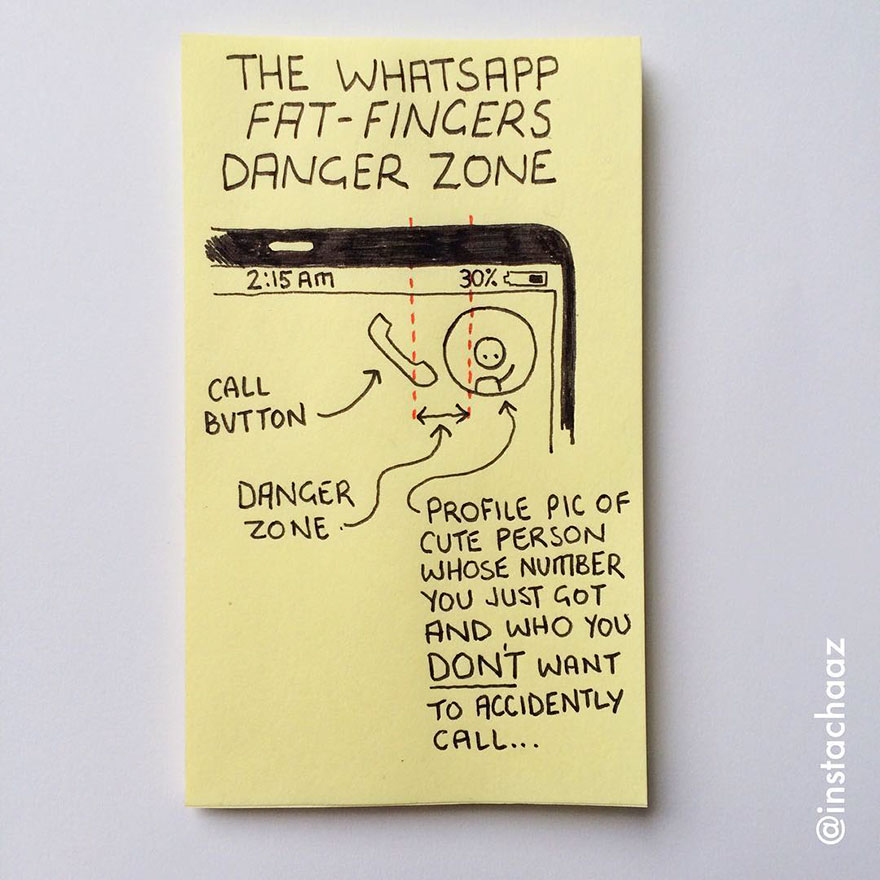 THE WHATSAPP
FAT-FINGERS
DANGER ZONE
2:15 AM 30%
CALL
BUTTON
DANGER
ZONE.
PROFILE PIC OF
CUTE PERSON
WHOSE NUMBER
YOU JUST GOT
AND WHO YOU
DON'T WANT
TO ACCIDENTLY
CALL...
@instachaaz